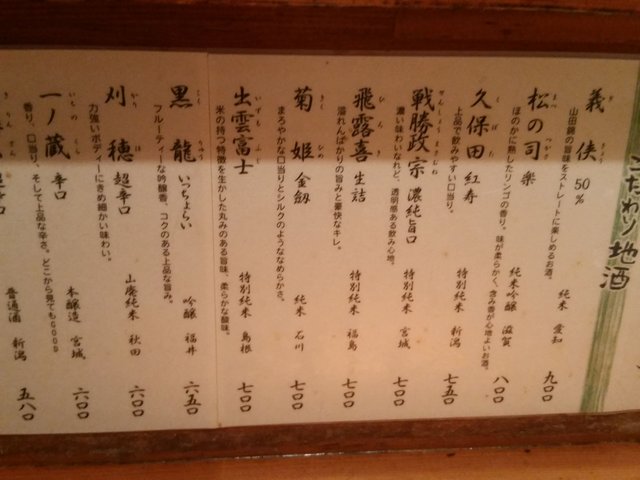 こだわり地酒
義侠 50%
ぎきょう
山田錦の旨味をストレートに楽しめるお酒。
純米 愛知
九〇〇
松の司 楽
まつ つかさ
ほのかに熟したリンゴの香り。味が柔らかく、含み香が心地よいお酒。
純米吟醸 滋賀
八〇〇
久保田 紅寿
くぼた
上品で飲みやすい口当り。
特別純米 新潟
七五〇
戦勝政宗 濃純旨口
せんしょうまさむね
濃い味わいなれど、透明感ある飲み心地。
特別純米 宮城
七〇〇
飛露喜 生詰
ひろき
溢れんばかりの旨みと豪快なキレ。
特別純米 福島
七〇〇
菊姫 金劔
きくひめ
まろやかな口当りとシルクのようななめらかさ。
純米 石川
七〇〇
出雲富士
いずもふじ
米の持つ特徴を生かした丸みのある旨味、柔らかな酸味。
特別純米 島根
七〇〇
黒龍 いっちょらい
こくりゅう
フルーティーな吟醸香、コクのある上品な旨み。
吟醸 福井
六五〇
刈穂 超辛口
かりほ
力強いボディーにきめ細かい味わい。
山廃純米 秋田
六〇〇
一ノ蔵 辛口
いちのくら
香り、口当り、そして上品な辛さ。どこから見てもGOOD
本醸造 宮城
六〇〇
普通酒 新潟
五八〇